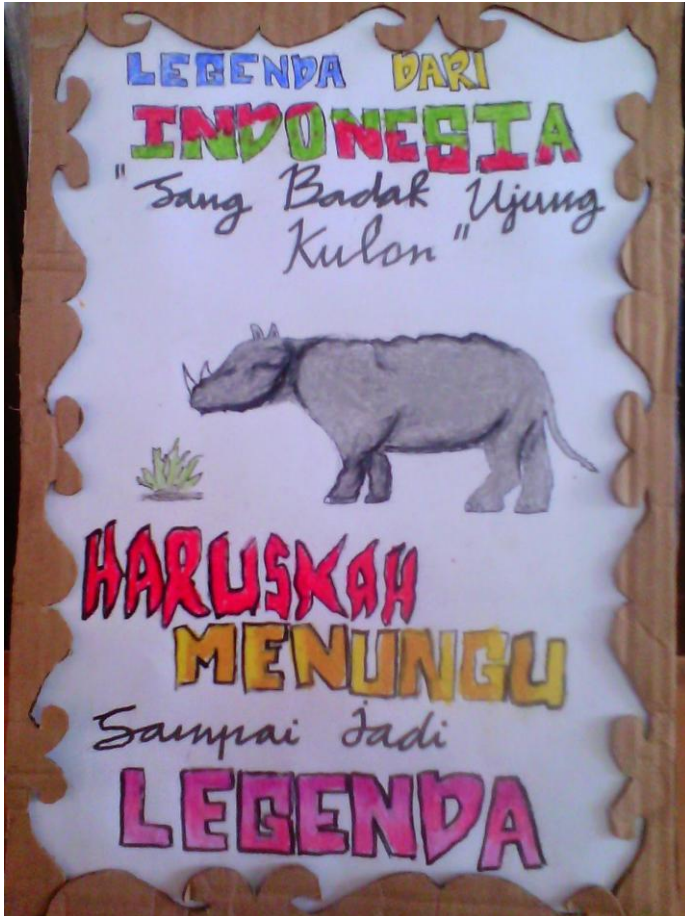 LEGENDA DARI
INDONESIA
"Sang Badak Ujung
Kulon"
HARUSKAH
MENUNGU
Sampai Jadi
LEGENDA